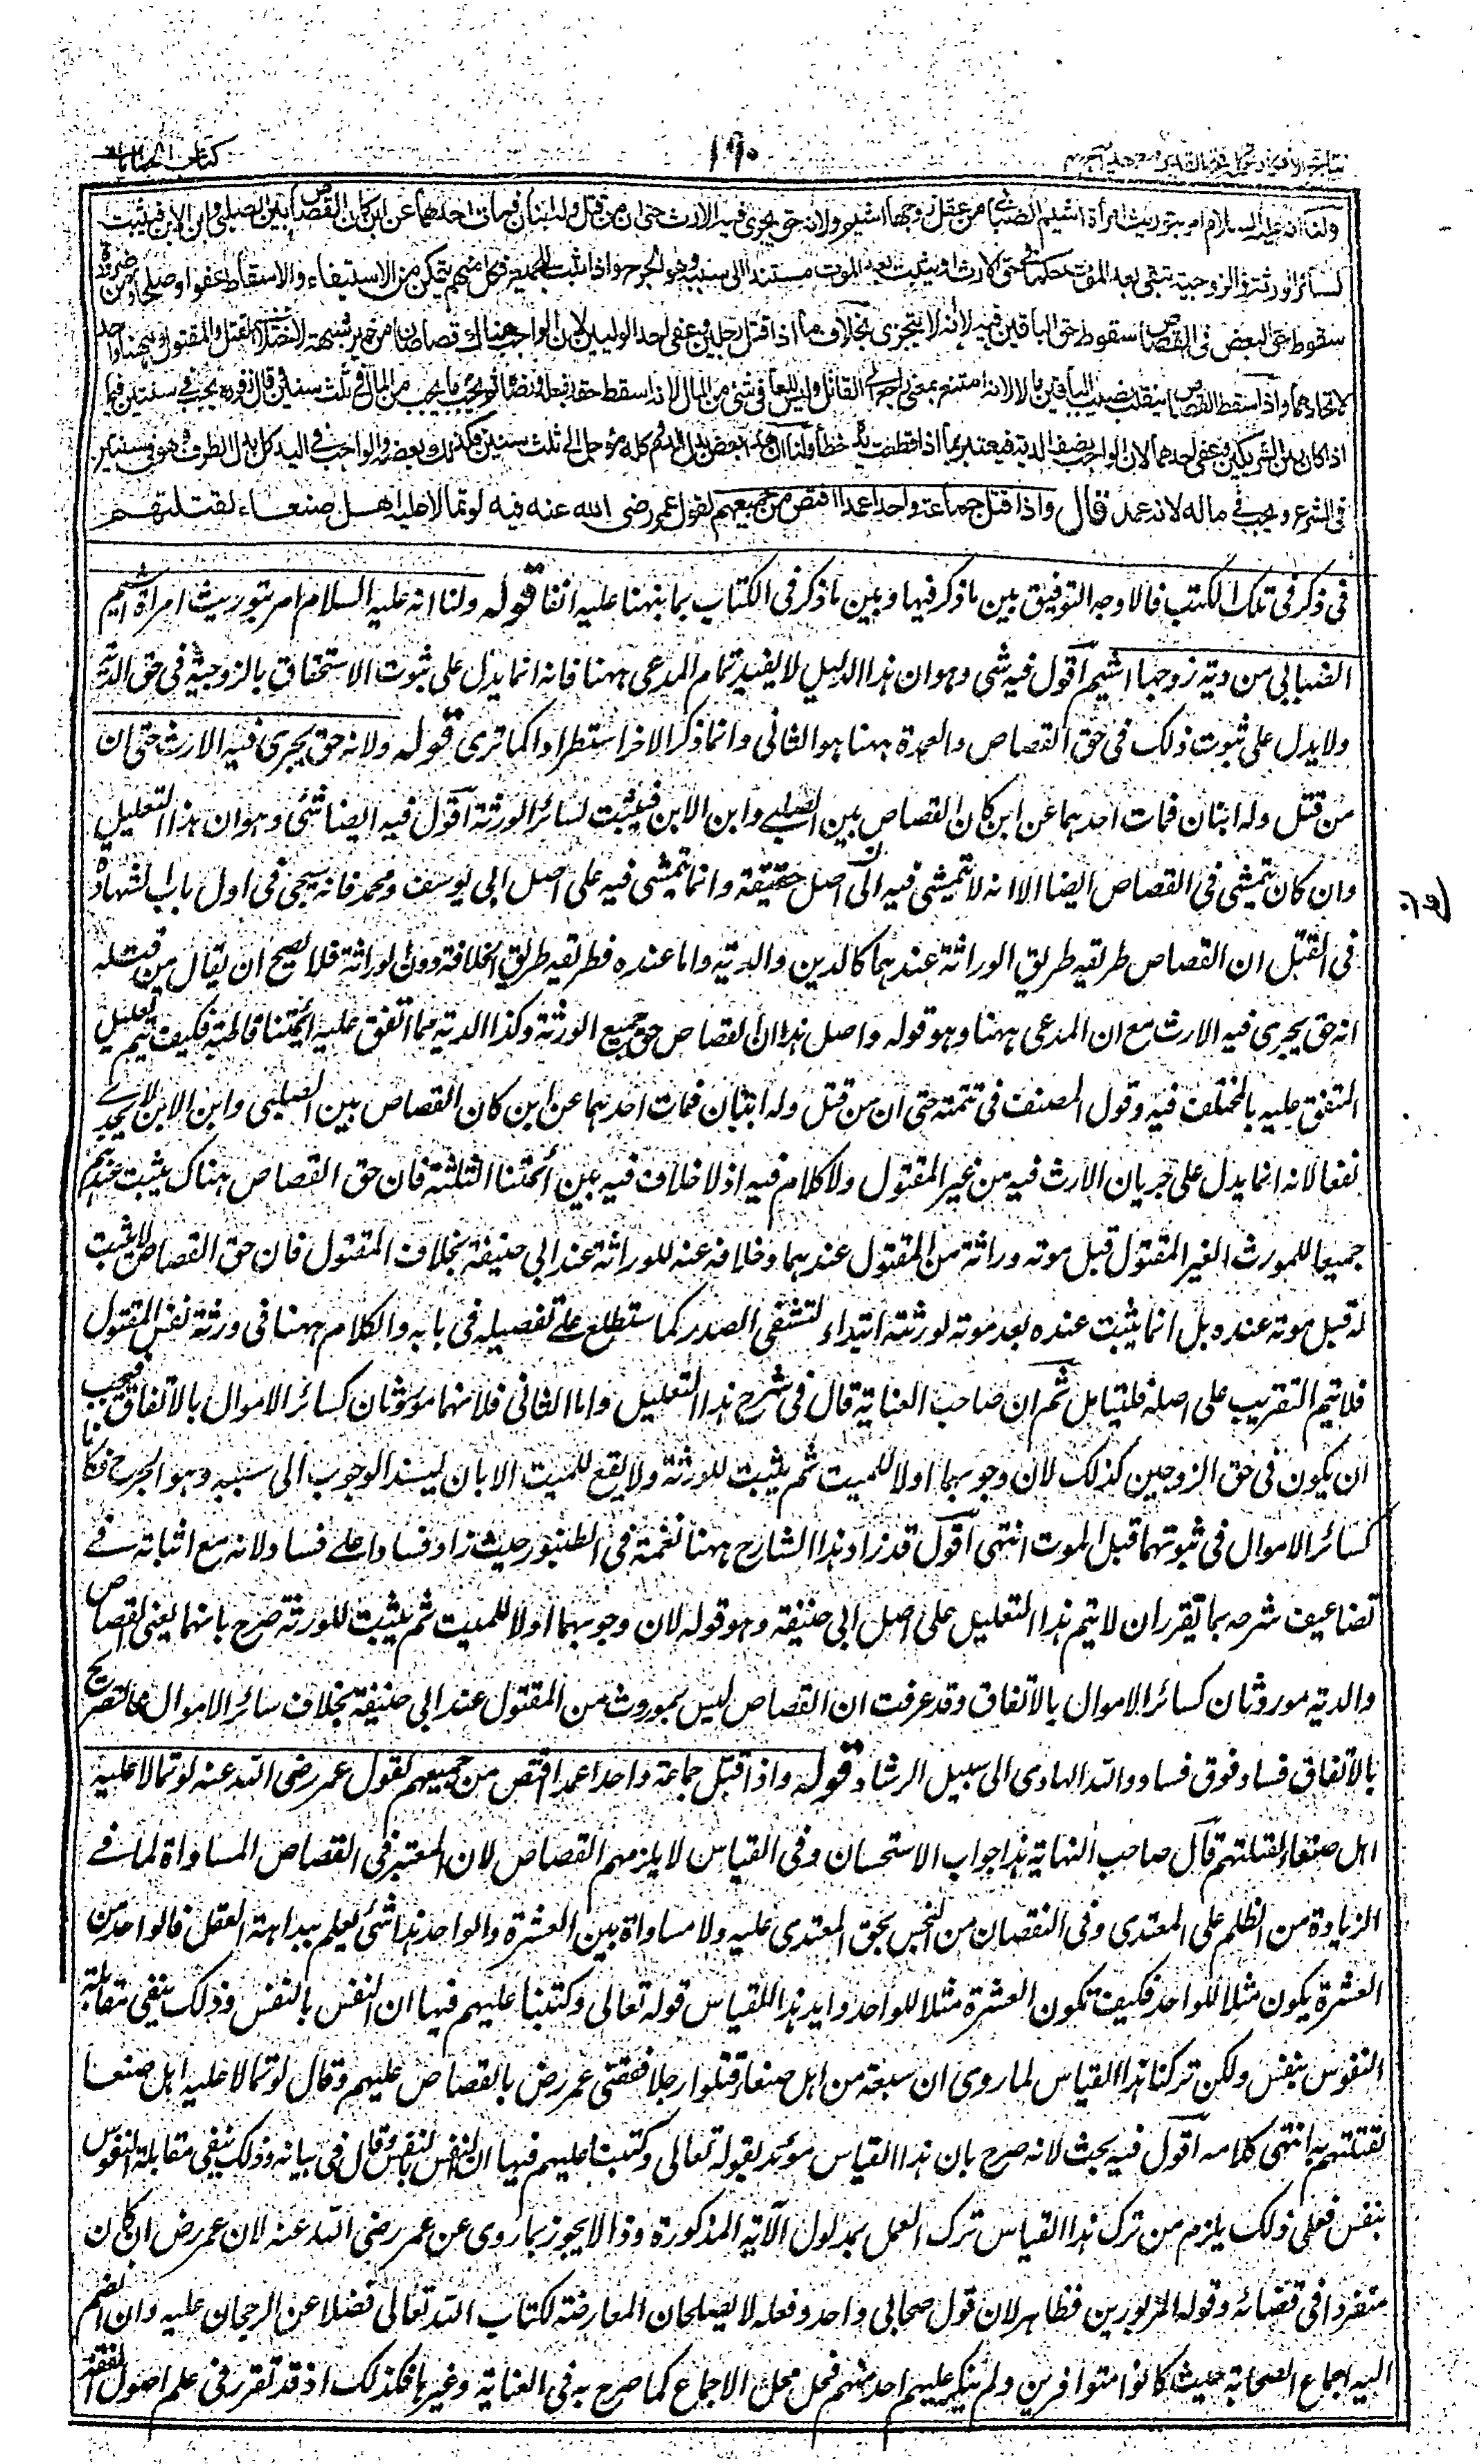 نتائج الافكار تكملة فتح القدير مع هدايه آخرين
١٩٠
كتاب الجنايات
ولنا انه عليه السلام امر بتوريث امرأة اشيم الضبابي من عقل زوجها اشيم ولانه حق يجرى فيه الارث حتى ان من قتل وله ابنان فمات احدهما عن ابن كان القصاص بين الصلبى وابن الابن فيثبت
لسائر الورثة والزوجية تبقى بعد الموت حكما فى حق الارث او يثبت بعد الموت مستندا الى سببه وهو الجرح واذا ثبت للجميع فكل منهم يتمكن من الاستيفاء والاسقاط عفوا وصلحا ومن ضرورة
سقوط حق البعض فى القصاص سقوط حق الباقين فيه لانه لا يتجزى بخلاف ما اذا قتل رجلين وعفى احد الوليين لان الواجب هناك قصاصان من غير شبهة لاختلاف القتل والمقتول وههنا واحد
لاتحادهما واذا سقط القصاص ينقلب نصيب الباقين مالا لانه امتنع بمعنى راجع الى القاتل وليس للعافى شئ من المال لانه اسقط حقه بفعله ورضاه ثم يجب ما يجب من المال فى ثلث سنين وقال زفر يجب فى سنتين فيما
اذا كان بين الشريكين وعفى احدهما لان الواجب نصف الدية فيعتبر بما اذا قطعت يده خطأ ولنا ان هذا بعض بدل الدم وكله مؤجل الى ثلث سنين فكذلك بعضه والواجب فى اليد كل بدل الطرف وهو فى سنتين
فى الشرع ويجب فى ماله لانه عمد قال واذا قتل جماعة واحدا عمدا اقتص من جميعهم لقول عمر رضى الله عنه فيه لو تمالا عليه اهل صنعاء لقتلتهم
فى ذكر فى تلك الكتب فالاوجه التوفيق بين ما ذكر فيها وبين ما ذكر فى الكتاب بما نبهنا عليه انفا قوله ولنا انه عليه السلام امر بتوريث امرأة اشيم
الضبابى من دية زوجها اشيم اقول فيه شى وهو ان هذا الدليل لا يفيد تمام المدعى ههنا فانه انما يدل على ثبوت الاستحقاق بالزوجية فى حق الدية
ولا يدل على ثبوت ذلك فى حق القصاص والعمدة ههنا هو الثانى وانما ذكر الاخر استطرادا كما ترى قوله ولانه حق يجرى فيه الارث حتى ان
من قتل وله ابنان فمات احدهما عن ابن كان القصاص بين الصلبى وابن الابن فيثبت لسائر الورثة اقول فيه ايضا شئ وهو ان هذا التعليل
وان كان يتمشى فى القصاص ايضا الا انه لا يتمشى فيه على اصل ابى حنيفة وانما يتمشى فيه على اصل ابى يوسف ومحمد فانه سيجى فى اول باب الشهادة
فى القتل ان القصاص طريقه طريق الوراثة عندهما كالدين والدية واما عنده فطريقه طريق الخلافة دون الوراثة فلا يصح ان يقال من قبله
انه حق يجرى فيه الارث مع ان المدعى ههنا وهو قوله واصل هذا ان القصاص حق جميع الورثة وكذا الدية مما اتفق عليه ائمتنا قاطبة فكيف يتم تعليل
المتفق عليه بالمختلف فيه وقول المصنف فى تتمته حتى ان من قتل وله ابنان فمات احدهما عن ابن كان القصاص بين الصلبى وابن الابن لا يجدى
نفعا لانه انما يدل على جريان الارث فيه من غير المقتول ولا كلام فيه اذ لا خلاف فيه بين أئمتنا الثلثة فان حق القصاص هناك يثبت عندهم
جميعا للمورث الغير المقتول قبل موته وراثة من المقتول عندهما وخلافه عنه للوراثة عند ابى حنيفة بخلاف المقتول فان حق القصاص لا يثبت
له قبل موته عنده بل انما يثبت عنده بعد موته لورثته ابتداء لتشفى الصدر كما ستطلع على تفصيله فى بابه والكلام ههنا فى ورثة نفس المقتول
فلا يتم التقريب على اصله فليتامل ثم ان صاحب العناية قال فى شرح هذا التعليل واما الثانى فلانهما موروثان كسائر الاموال بالاتفاق فيجب
ان يكون فى حق الزوجين كذلك لان وجوبهما اولا للميت ثم يثبت للورثة ولا يقع للميت الا بان يسند الوجوب الى سببه وهو الجرح فكانا
كسائر الاموال فى ثبوتهما قبل الموت انتهى اقول قد زاد هذا الشارح ههنا نغمة فى الطنبور حيث زاد فسادا على فساد لانه مع اثباته فى
تضاعيف شرحه بما يقرر ان لا يتم هذا التعليل على اصل ابى حنيفة وهو قوله لان وجوبهما اولا للميت ثم يثبت للورثة صرح بانهما يعنى القصاص
والدية موروثان كسائر الاموال بالاتفاق وقد عرفت ان القصاص ليس بموروث من المقتول عند ابى حنيفة بخلاف سائر الاموال فالتصريح
بالاتفاق فساد فوق فساد والله الهادى الى سبيل الرشاد قوله واذا قتل جماعة واحدا عمدا اقتص من جميعهم لقول عمر رضى الله عنه لو تمالا عليه
اهل صنعاء لقتلتهم قال صاحب النهاية هذا جواب الاستحسان وفى القياس لا يلزمهم القصاص لان المعتبر فى القصاص المساواة لما فى
الزيادة من الظلم على المعتدى وفى النقصان من البخس بحق المعتدى عليه ولا مساواة بين العشرة والواحد هذا شئ يعلم ببداهة العقل فالواحد من
العشرة يكون مثلا للواحد فكيف تكون العشرة مثلا للواحد وايد هذا القياس قوله تعالى وكتبنا عليهم فيها ان النفس بالنفس وذلك ينفى مقابلة
النفوس بنفس ولكن تركنا هذا القياس لما روى ان سبعة من اهل صنعاء قتلوا رجلا فقضى عمر رض بالقصاص عليهم وقال لو تمالا عليه اهل صنعا
لقتلتهم به انتهى كلامه اقول فيه بحث لانه صرح بان هذا القياس مؤيد بقوله تعالى وكتبنا عليهم فيها ان النفس بالنفس وقال فى بيانه وذلك ينفى مقابلة النفوس
بنفس فعلى ذلك يلزم من ترك هذا القياس ترك العمل بمدلول الآية المذكورة وذا لا يجوز بما روى عن عمر رضى الله عنه لان عمر رض ان كان
متفردا فى قضائه وقوله المزبورين فظاهر لان قول صحابى واحد وفعله لا يصلحان لمعارضة لكتاب الله تعالى فضلا عن الرجحان عليه وان انضم
اليه اجماع الصحابة حيث كانوا متوافرين ولم ينكر عليهم احد منهم فحل محل الاجماع كما صرح به فى العناية وغيرها فكذلك اذ قد تقرر فى علم اصول الفقه